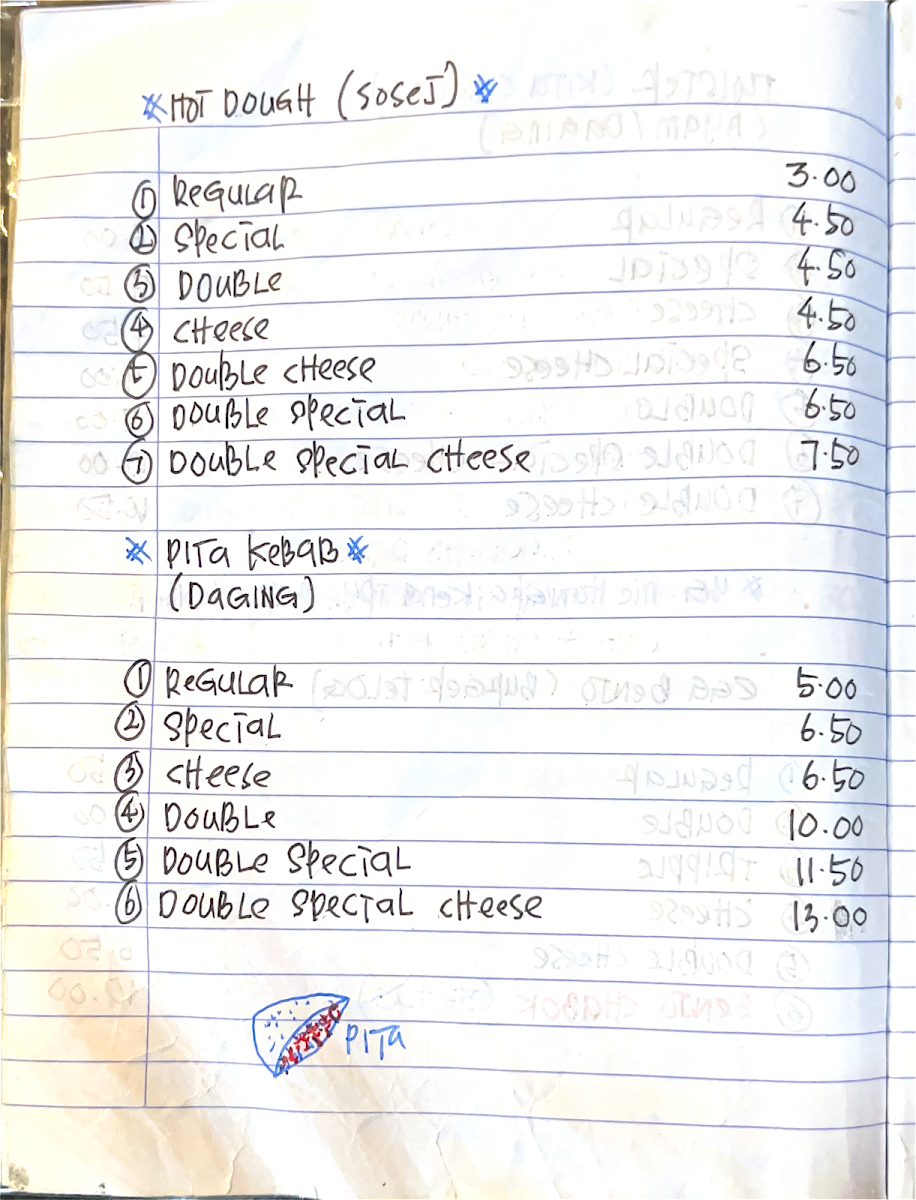 * HOT DOUGH (SOSEJ) *
① REGULAR 3.00
② SPECIAL 4.50
③ DOUBLE 4.50
④ CHEESE 4.50
⑤ DOUBLE CHEESE 6.50
⑥ DOUBLE SPECIAL 6.50
⑦ DOUBLE SPECIAL CHEESE 7.50
* PITA KEBAB *
(DAGING)
① REGULAR 5.00
② SPECIAL 6.50
③ CHEESE 6.50
④ DOUBLE 10.00
⑤ DOUBLE SPECIAL 11.50
⑥ DOUBLE SPECIAL CHEESE 13.00
PITA